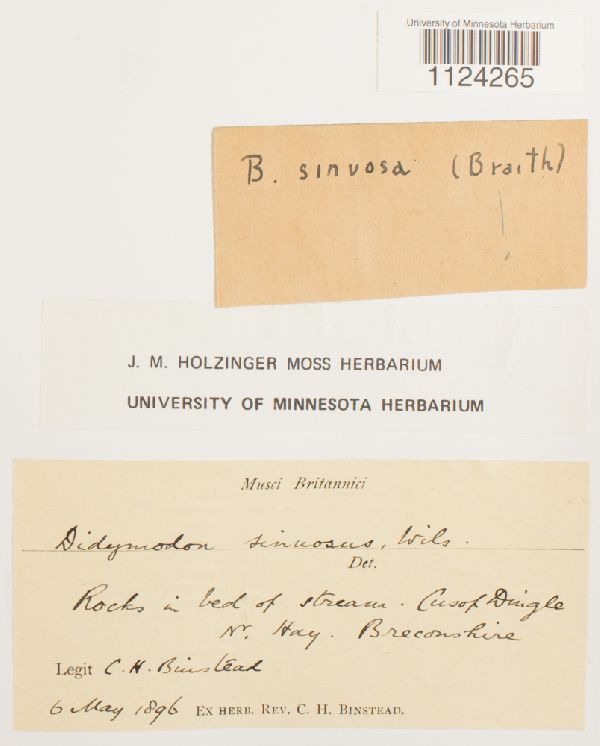 University of Minnesota Herbarium
1124265
B. sinuosa (Braith)
!
J. M. HOLZINGER MOSS HERBARIUM
UNIVERSITY OF MINNESOTA HERBARIUM
Musci Britannici
Didymodon sinuosus, Wils.
Det.
Rocks in bed of stream. Cusop Dingle
Nr. Hay. Breconshire
Legit C. H. Binstead
6 May 1896 EX HERB. REV. C. H. BINSTEAD.